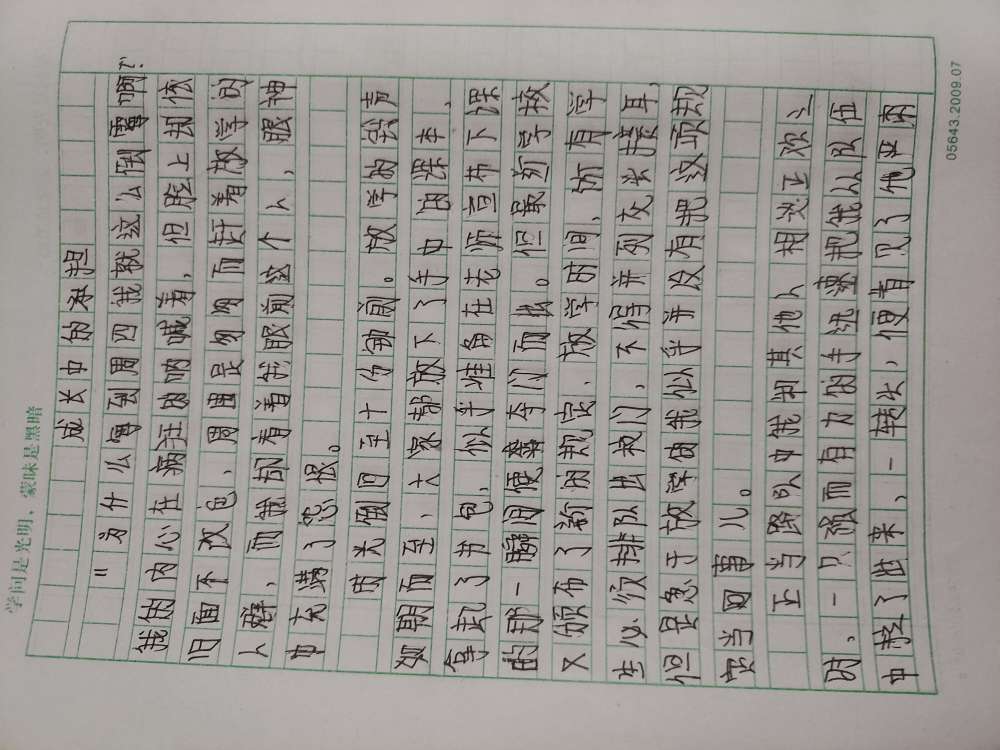 学问是光明，蒙昧是黑暗
成长中的承担
"为什么每到周四我就这么倒霉啊?"
我的内心在疯狂的呐喊着，但脸上却依
旧面不改色，周围是匆匆而过着放学的
人群，而我却看着我眼前这个人，眼神
中充满了怨恨。
时光倒回至十分钟前。放学的铃声
如期而至，大家都放下了手中的课本，
拿起了书包，似乎准备在老师宣布下课
的那一瞬间便夺门而出。但最近学校
又颁布了新的规定，放学时间，所有学
生必须排队出校门，不得并列交头接耳，
但是急于放学的我似乎并没有把这项规
定当回事儿。
正当路队中我和其他人相谈正欢之
时，一只强而有力的手迅速把我从队伍
中拉了出来，一转头，便看见了他严肃
05643.2009.07